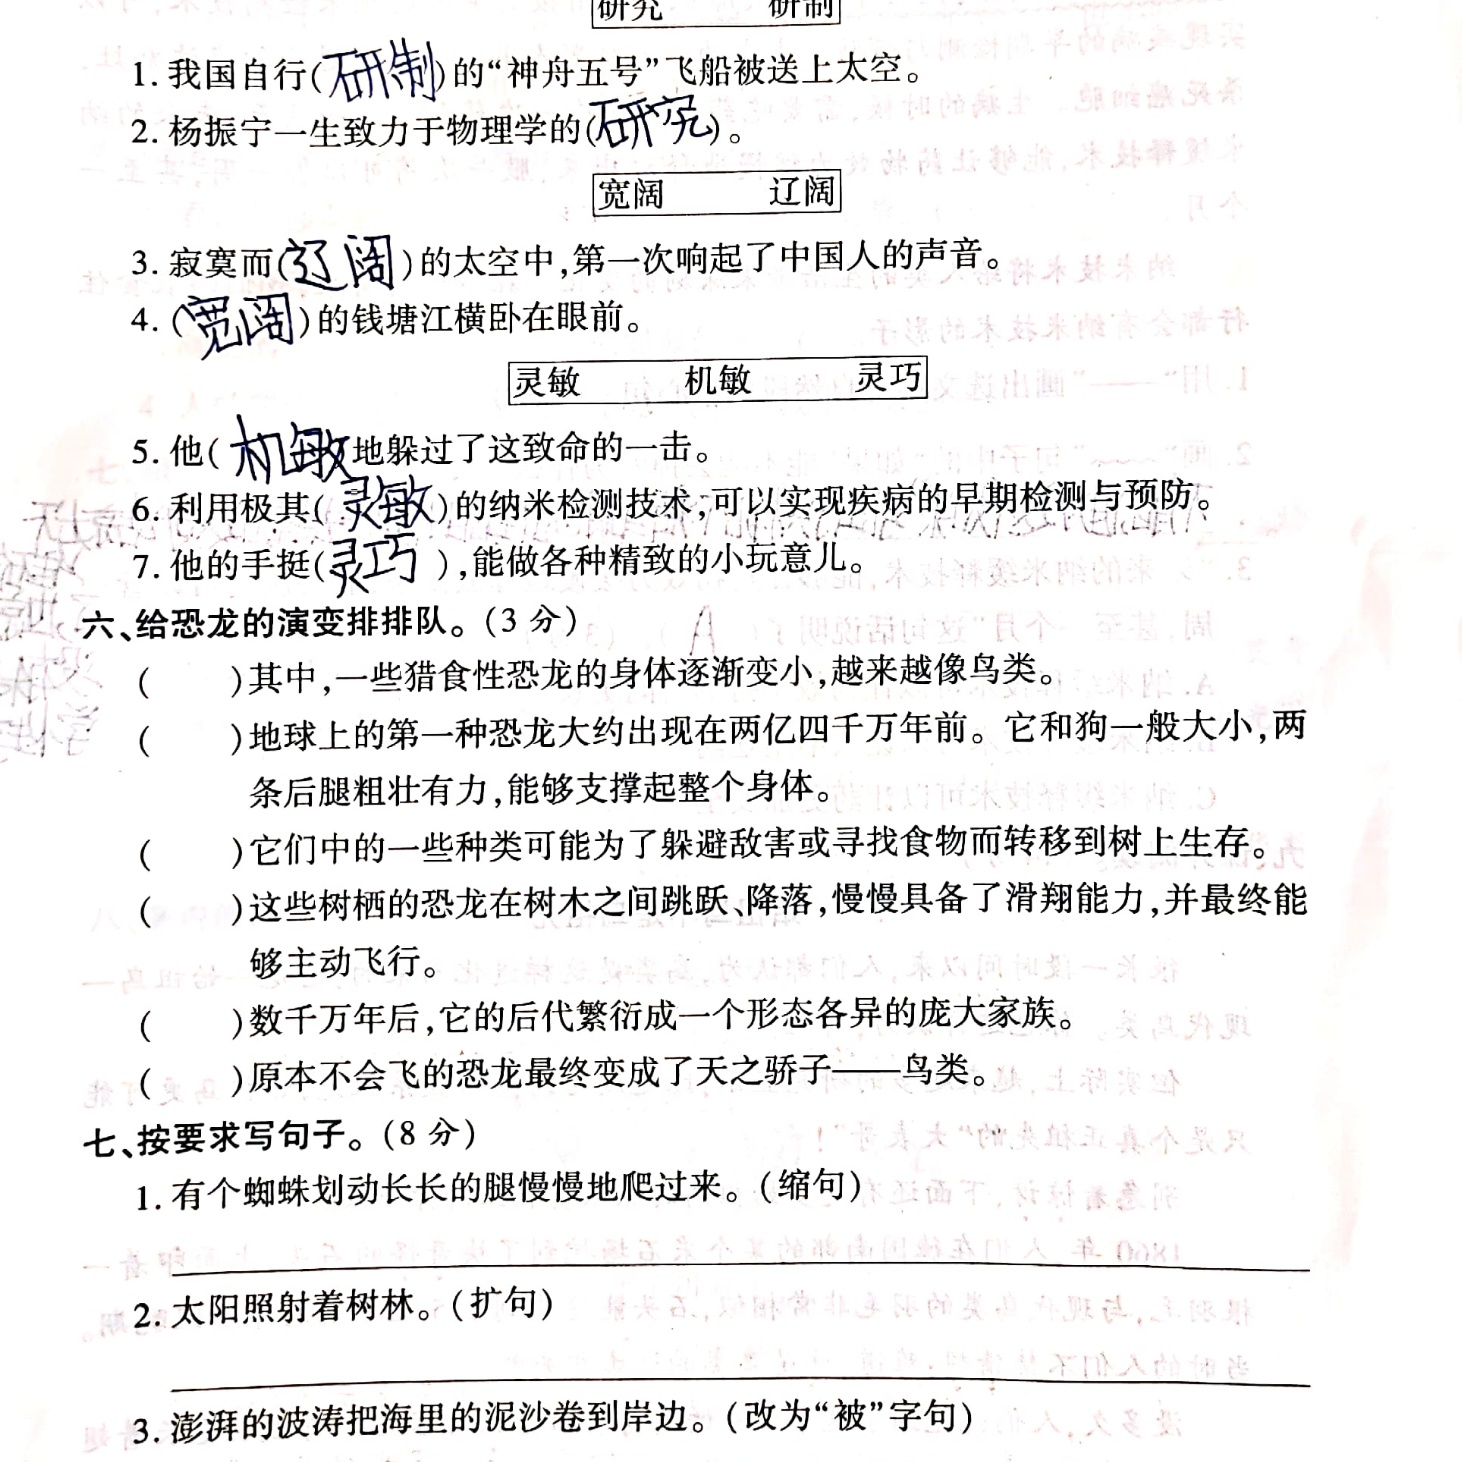 研究 研制
1. 我国自行(研制)的“神舟五号”飞船被送上太空。
2. 杨振宁一生致力于物理学的(研究)。
宽阔 辽阔
3. 寂寞而(辽阔)的太空中,第一次响起了中国人的声音。
4. (宽阔)的钱塘江横卧在眼前。
灵敏 机敏 灵巧
5. 他(机敏)地躲过了这致命的一击。
6. 利用极其(灵敏)的纳米检测技术,可以实现疾病的早期检测与预防。
7. 他的手挺(灵巧),能做各种精致的小玩意儿。
六、给恐龙的演变排排队。(3 分)
( )其中,一些猎食性恐龙的身体逐渐变小,越来越像鸟类。
( )地球上的第一种恐龙大约出现在两亿四千万年前。它和狗一般大小,两
条后腿粗壮有力,能够支撑起整个身体。
( )它们中的一些种类可能为了躲避敌害或寻找食物而转移到树上生存。
( )这些树栖的恐龙在树木之间跳跃、降落,慢慢具备了滑翔能力,并最终能
够主动飞行。
( )数千万年后,它的后代繁衍成一个形态各异的庞大家族。
( )原本不会飞的恐龙最终变成了天之骄子——鸟类。
七、按要求写句子。(8 分)
1. 有个蜘蛛划动长长的腿慢慢地爬过来。(缩句)
2. 太阳照射着树林。(扩句)
3. 澎湃的波涛把海里的泥沙卷到岸边。(改为“被”字句)